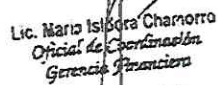 Lic. Mario Isidora Chamorro
Oficial de Coordinación
Gerencia Financiera